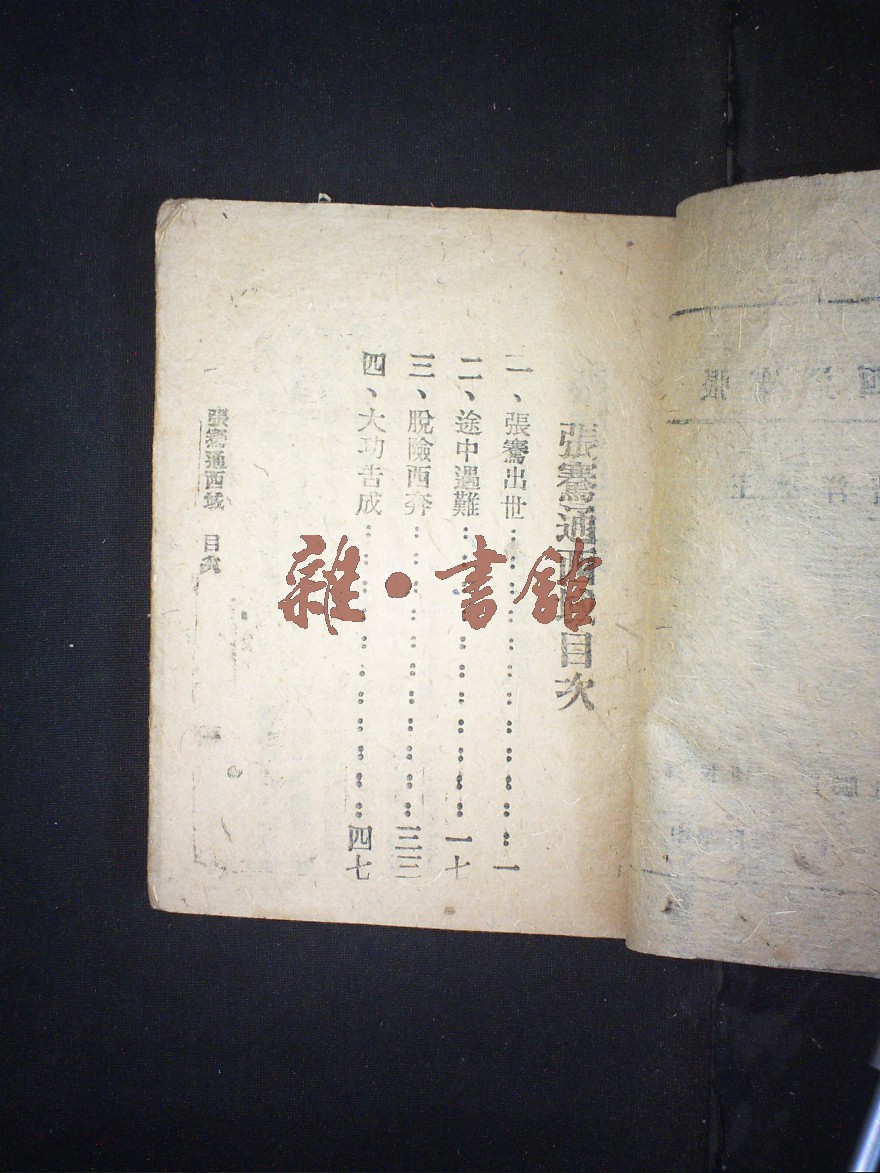 張騫通西域目次
一、張騫出世…………一
二、途中遇難…………一七
三、脫險西奔…………三三
四、大功告成…………四七
張騫通西域 目次
一
雜·書館